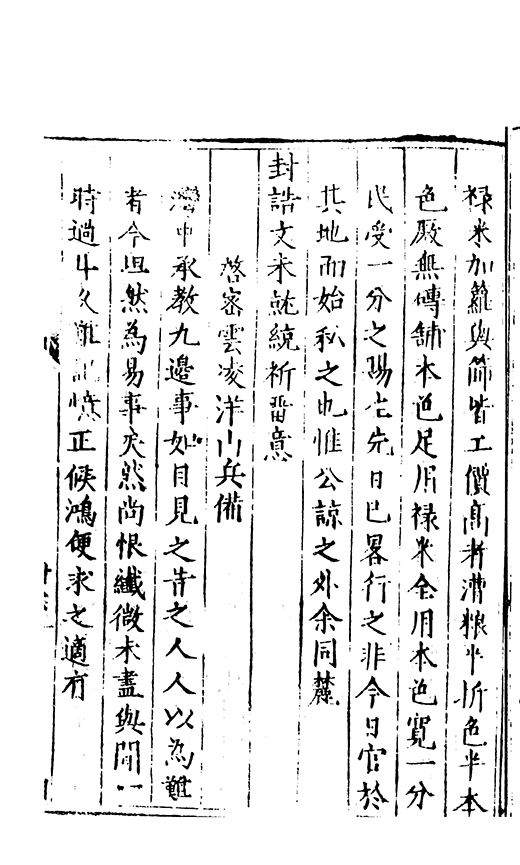 祿米加籠與篩皆工價高者漕粮半折色半本
色廠無磚舖本色足用祿米全用本色寬一分
民受一分之賜七完日已畧行之非今日官於
其地而始私之也惟公諒之外余同麓
封誥文未就統祈畱意
啓密雲凌洋山兵備
灣中承教九邊事如目見之告之人人以為難
者今坦然為易事矣然尚恨纖微未盡與聞一
時過久難記憶正候鴻便求之適有